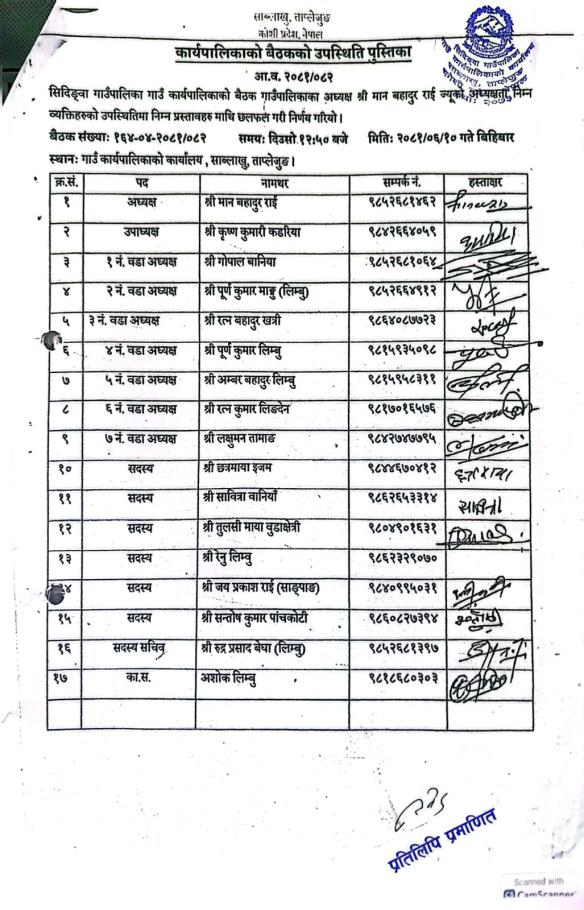 साब्लाखु, ताप्लेजुङ
कोशी प्रदेश, नेपाल
कार्यपालिकाको बैठकको उपस्थिति पुस्तिका
आ.व. २०८१/०८२
सिदिङ्वा गाउँपालिका गाउँ कार्यपालिकाको बैठक गाउँपालिकाका अध्यक्ष श्री मान बहादुर राई ज्यूको अध्यक्षता निम्न
व्यक्तिहरुको उपस्थितिमा निम्न प्रस्तावहरु माथि छलफल गरी निर्णय गरियो।
बैठक संख्याः १६४-०४-२०८१/०८२ समयः दिउसो १२:५० बजे मितिः २०८१/०६/१० गते बिहिबार
स्थानः गाउँ कार्यपालिकाको कार्यालय, साब्लाखु, ताप्लेजुङ।
क्र.सं. पद नामथर सम्पर्क नं. हस्ताक्षर
१ अध्यक्ष श्री मान बहादुर राई ९८५२६८१४६२
२ उपाध्यक्ष श्री कृष्ण कुमारी कडरिया ९८४२६६४०५९
३ १ नं. वडा अध्यक्ष श्री गोपाल बानिया ९८५२६८१०६४
४ २ नं. वडा अध्यक्ष श्री पूर्ण कुमार माङ्बु (लिम्बु) ९८५२६६४९१२
५ ३ नं. वडा अध्यक्ष श्री रत्न बहादुर खत्री ९८६४०८७७२३
६ ४ नं. वडा अध्यक्ष श्री पूर्ण कुमार लिम्बु ९८१५९३५०९८
७ ५ नं. वडा अध्यक्ष श्री अम्बर बहादुर लिम्बु ९८१५९५८३११
८ ६ नं. वडा अध्यक्ष श्री रत्न कुमार लिङदेन ९८१७०१६५७६
९ ७ नं. वडा अध्यक्ष श्री लक्षुमन तामाङ ९८४२७४७७९५
१० सदस्य श्री छत्रमाया इजम ९८४४६७०४१२
११ सदस्य श्री सावित्रा वानियाँ ९८६२६५३३१४ सावित्रा
१२ सदस्य श्री तुलसी माया वुडाक्षेत्री ९८०४९०१६३१
१३ सदस्य श्री रेनु लिम्बु ९८६२३२९०७०
१४ सदस्य श्री जय प्रकाश राई (साङ्पाङ) ९८४०९९५०३१
१५ सदस्य श्री सन्तोष कुमार पांचकोटी ९८६०८२७३९४
१६ सदस्य सचिव श्री रुद्र प्रसाद बेघा (लिम्बु) ९८५२६८१३९७
१७ का.स. अशोक लिम्बु ९८१८६८०३०३
प्रतिलिपि प्रमाणित
Scanned with
CamScanner